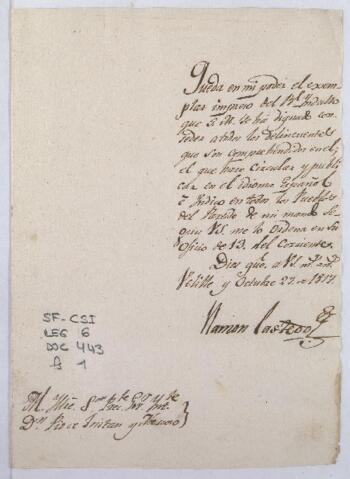 Queda en mi poder el exem-
plar impreso del Rl. Indulto
que S. M. se ha dignado con-
ceder a todos los delincuentes
que son comprehendidos en el;
el que hare Circular y publi-
car en el idioma Español
e Indico en todos los Pueblos
del Partido de mi mando se-
gun VS. me lo Ordena en su
Oficio de 13. del Corriente.
Dios gue. a VS. ms. as.
Velille, y Octubre 27. de 1817.
Ramon Castedo
SF-CSI
LEG 6
DOC 443
f 1
M. Ilte. Sor.
Dn. Pio de Tristan y Moscoso